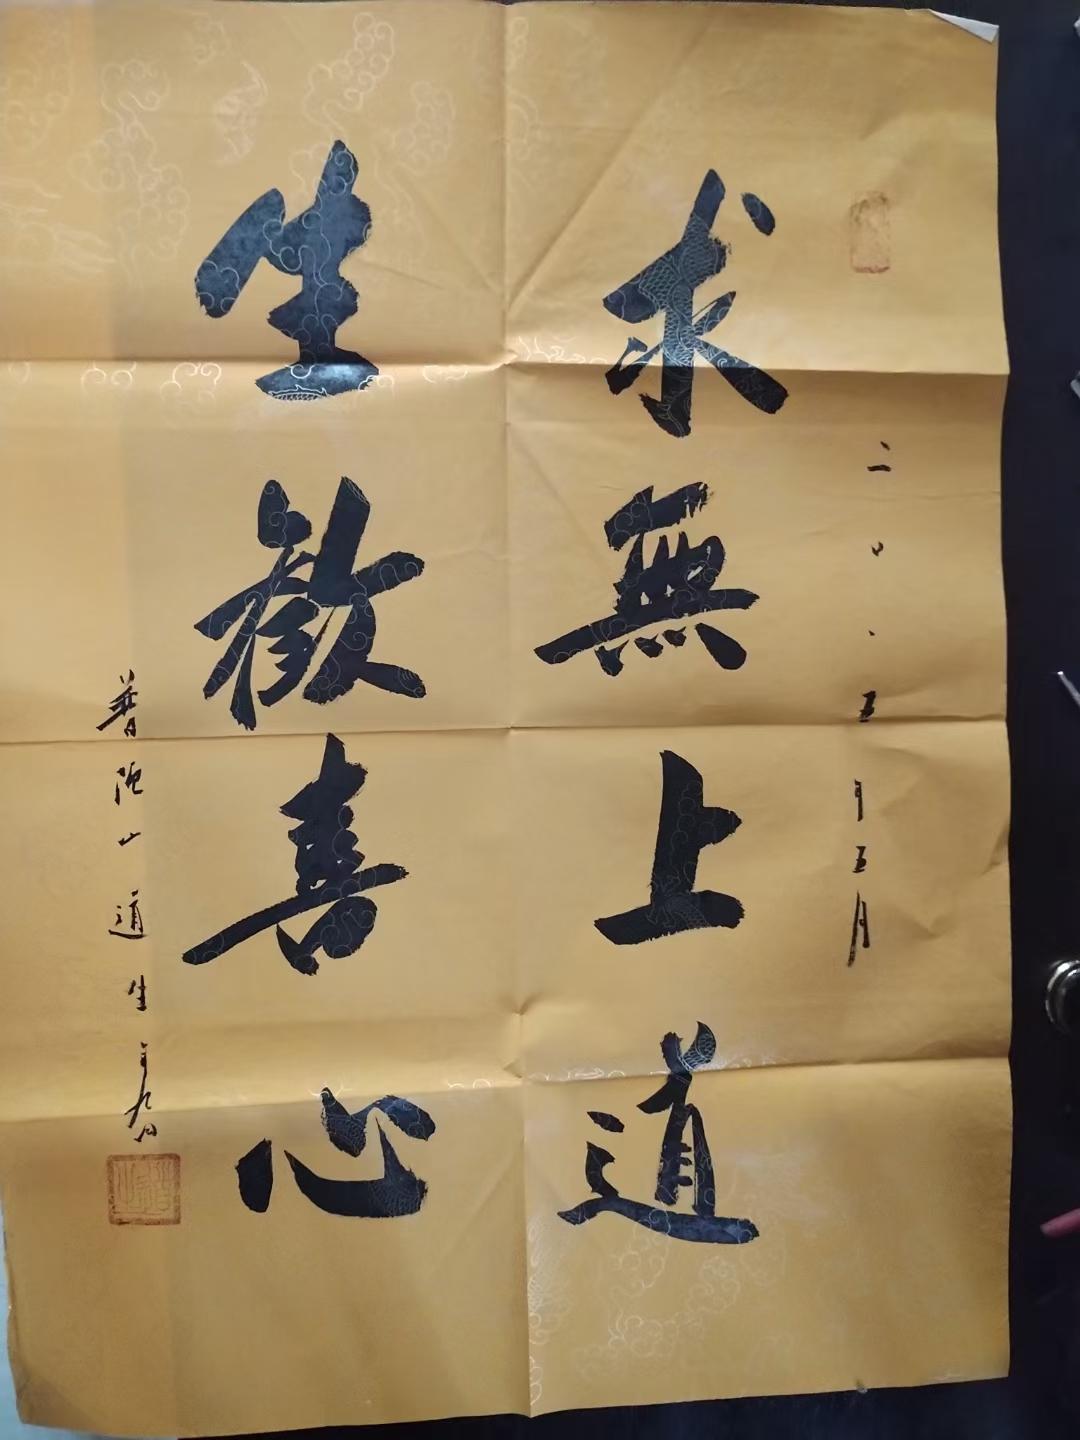 二〇五年五月
求無上道
生歡喜心
普陀山道生